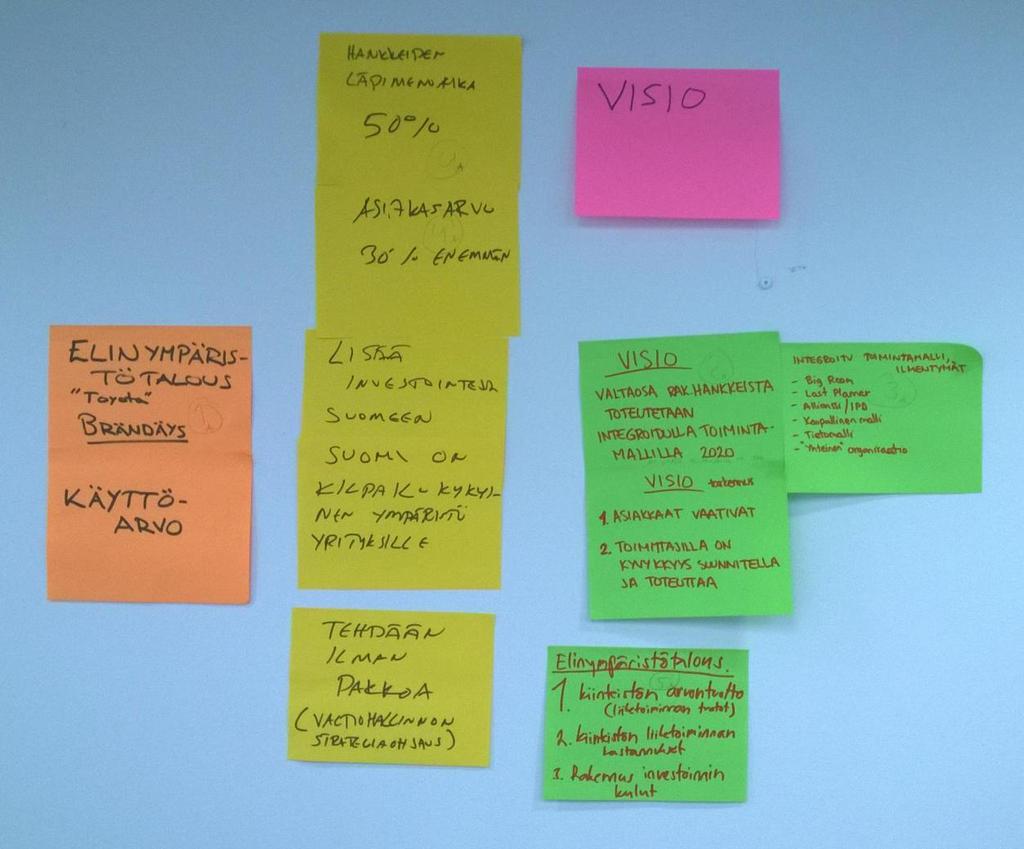 HANKKEIDEN
LÄPIMENOAIKA
50%
ASIAKASARVO
30% ENEMMÄN
VISIO
ELINYMPÄRIS-
TÖTALOUS
"Toyota"
BRÄNDÄYS
KÄYTTÖ-
ARVO
LISÄÄ
INVESTOINTEJA
SUOMEEN
SUOMI ON
KILPAILUKYKYI-
NEN YMPÄRISTÖ
YRITYKSILLE
TEHDÄÄN
ILMAN
PAKKOA
(VALTIOHALLINNON
STRATEGIAOHJAUS)
VISIO
VALTAOSA RAK.HANKKEISTA
TOTEUTETAAN
INTEGROIDULLA TOIMINTA-
MALLILLA 2020
VISIO tarkennus
1. ASIAKKAAT VAATIVAT
2. TOIMITTAJILLA ON
KYVYKKYYS SUUNNITELLA
JA TOTEUTTAA
INTEGROITU TOIMINTAMALLI,
ILMENTYMÄT
- Big Room
- Last Planner
- Allianssi/IPD
- Kaupallinen malli
- Tietomalli
- "Yhteinen" organisaatio
Elinympäristötalous.
1. kiinteistön arvontuotto
(liiketoiminnan tuotot)
2. kiinteistön liiketoiminnan
kustannukset
3. Rakennus investoinnin
kulut